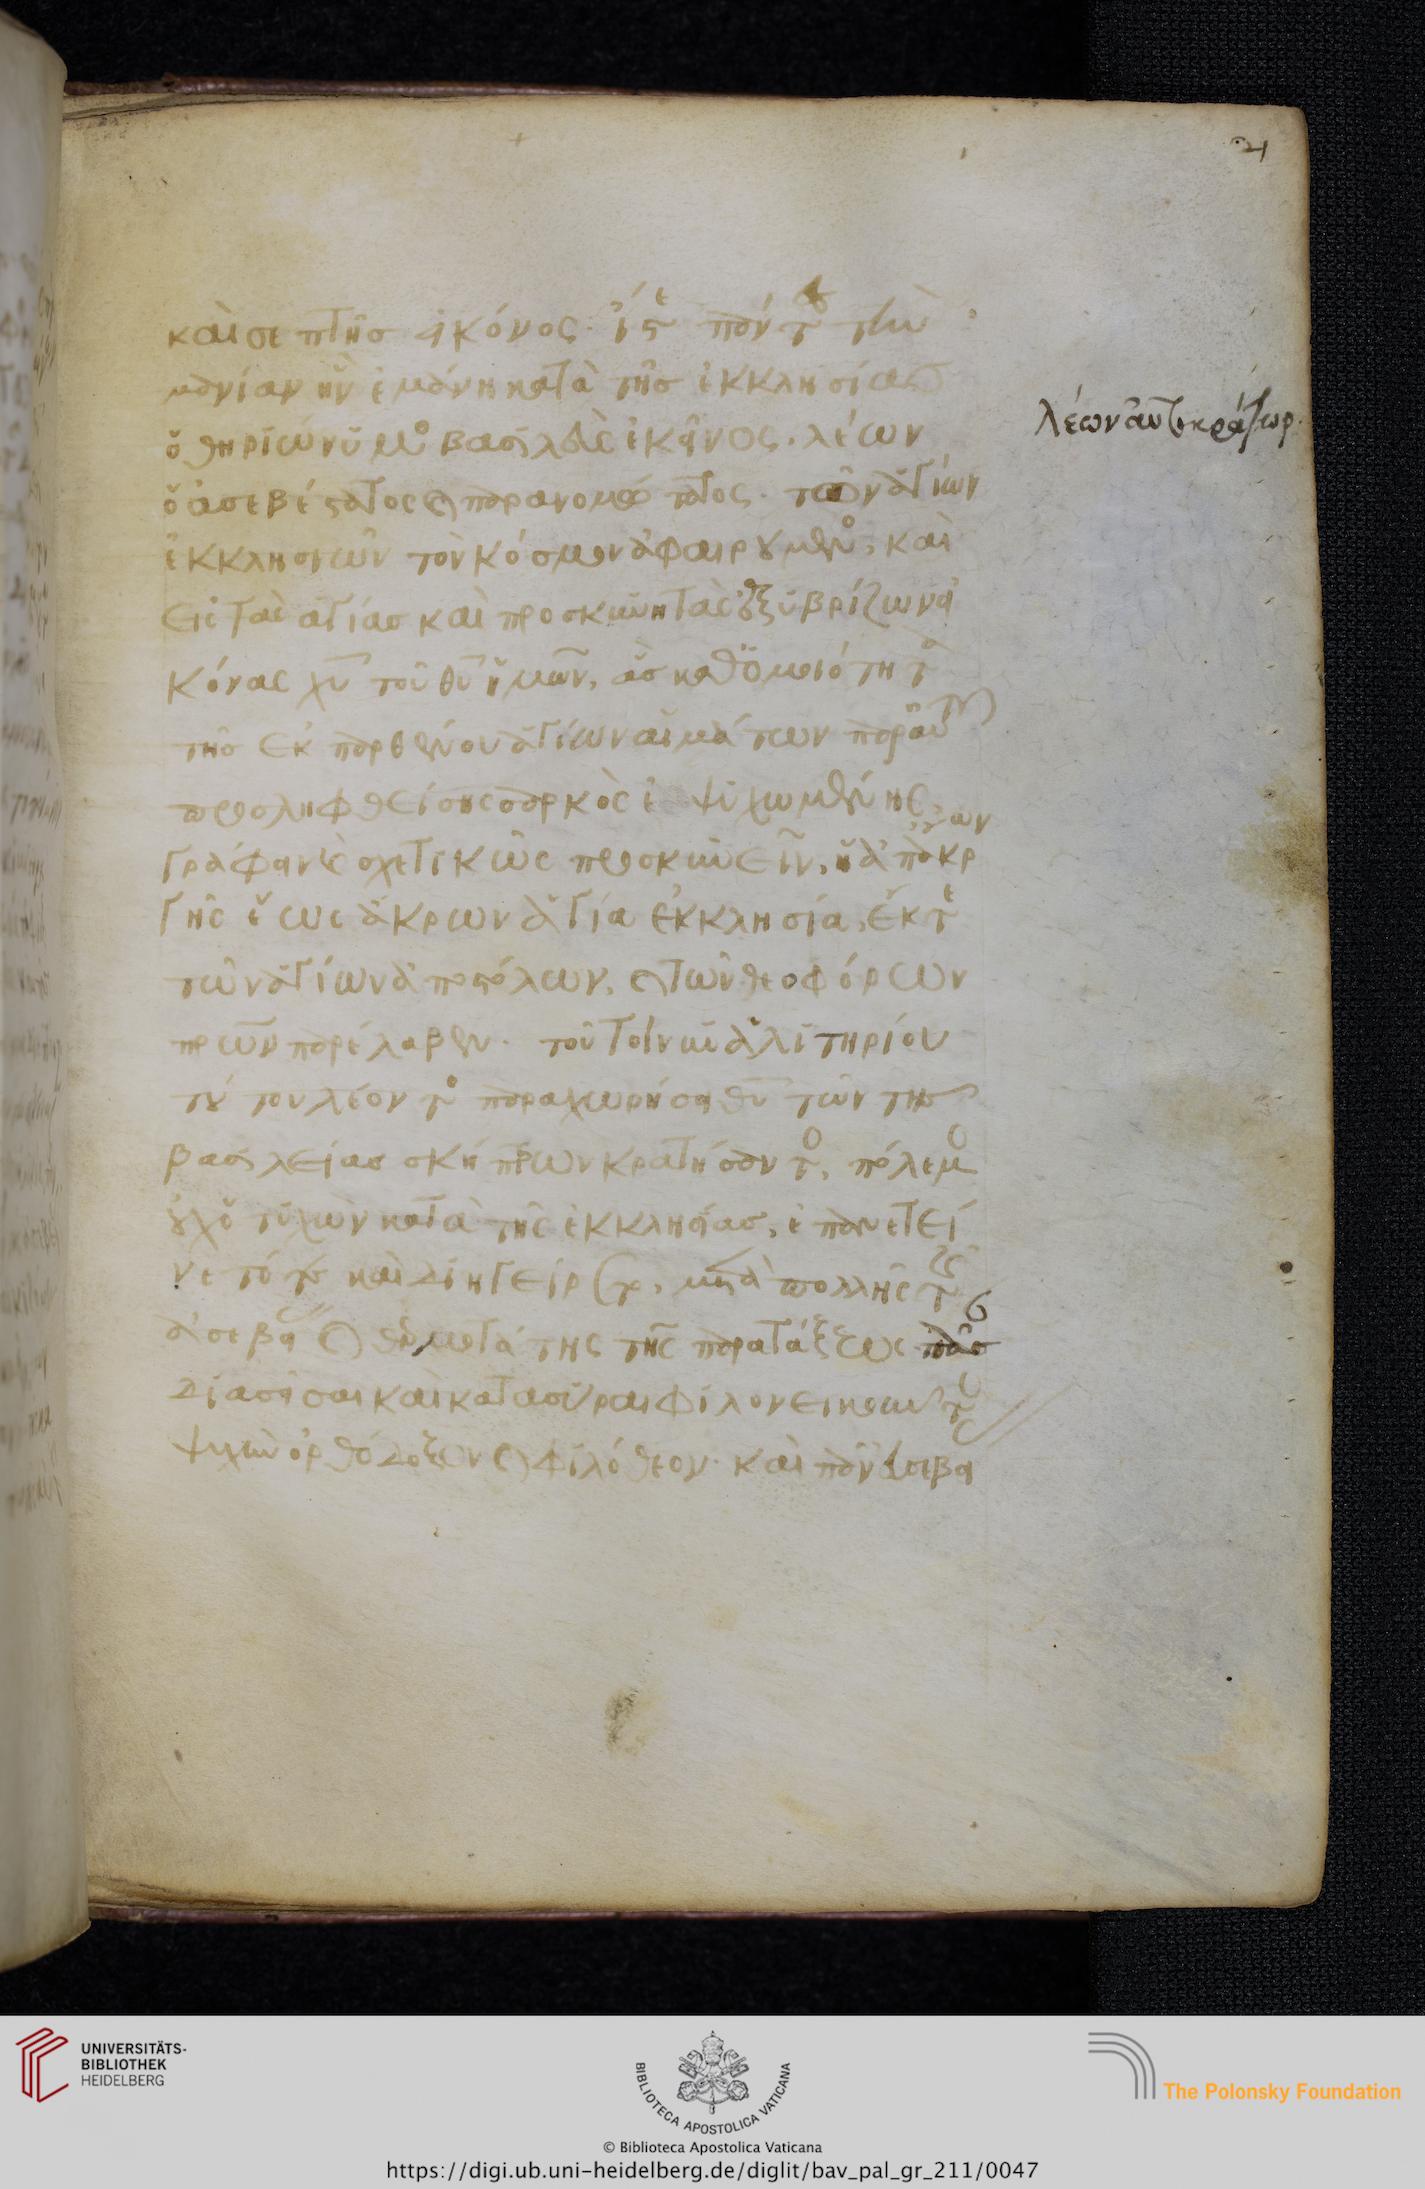 καὶ σεπτῆς εἰκόνος. ἴστε πάντες τὴν
μανίαν ἣν ἐμάνη κατὰ τῆς ἐκκλησίας
ὁ θηριώνυμος βασιλεὺς ἐκεῖνος. λέων
ὁ ἀσεβέστατος καὶ παρανομώτατος. τῶν ἁγίων
ἐκκλησιῶν τὸν κόσμον ἀφαιρούμενος, καὶ
εἰς τὰς ἁγίας καὶ προσκυνητὰς ἐξυβρίζων εἰ
κόνας χυ τοῦ θυ ἡμῶν, ἃς καθ ὁμοιότητα
τῆς ἐκ παρθένου ἁγίων αἱμάτων παρ αὐτοῦ
προσληφθείσης σαρκὸς ἐψυχωμένης,
γράφειν καὶ σχετικῶς προσκυνεῖν, ἡ ἀπ ἄκρων
γῆς ἕως ἄκρων ἁγία ἐκκλησία, ἔκ τε
τῶν ἁγίων ἀποστόλων, καὶ τῶν θεοφόρων
πρων παρέλαβεν. τοῦ τοίνυν ἀλιτηρίου
τούτου λέοντος παραχωρήσει θυ τῶν τῆς
βασιλείας σκήπτρων κρατήσαντος, πόλεμος
οὐχ ὁ τυχὼν κατὰ τῆς ἐκκλησίας, ἐπανετεί
νετό τε καὶ διηγείρετο, μετὰ πολλῆς τῆς
ἀσεβείας καὶ θερμοτάτης τῆς παρατάξεως πᾶσαν
διασεῖσαι καὶ κατασῦραι φιλονεικῶν
ψυχὴν ὀρθόδοξον καὶ φιλόθεον. καὶ πᾶν εὐσεβεῖ
λέων αὐτοκράτωρ.
21
UNIVERSITÄTS-
BIBLIOTHEK
HEIDELBERG
BIBLIOTECA APOSTOLICA VATICANA
© Biblioteca Apostolica Vaticana
The Polonsky Foundation
https://digi.ub.uni-heidelberg.de/diglit/bav_pal_gr_211/0047